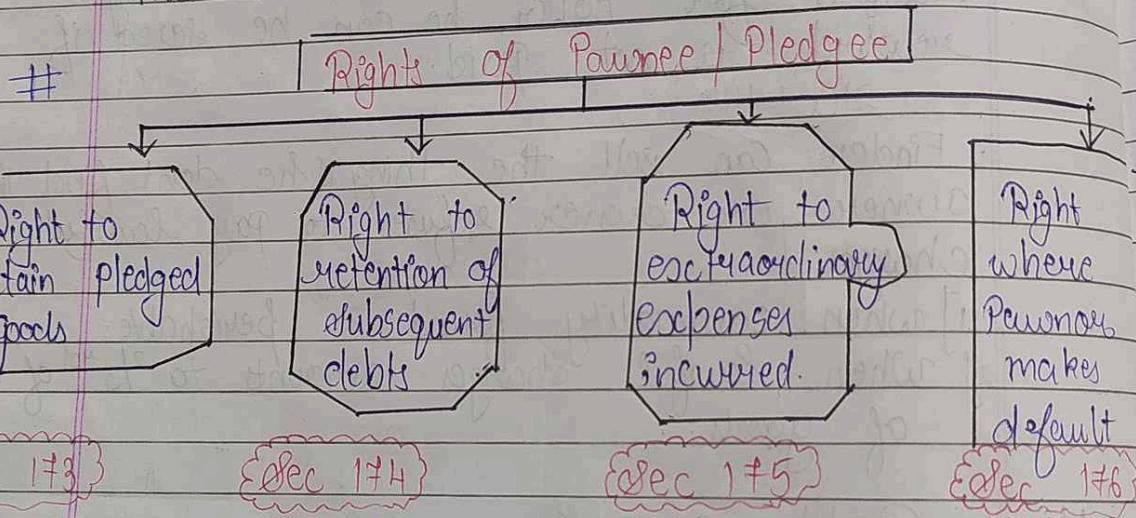 # Rights of Pawnee / Pledgee
Right to
tain pledged
goods
173
Right to
retention of
subsequent
debts
Sec 174
Right to
extraordinary
expenses
incurred.
Sec 175
Right
where
Pawnor
makes
default
Sec 176